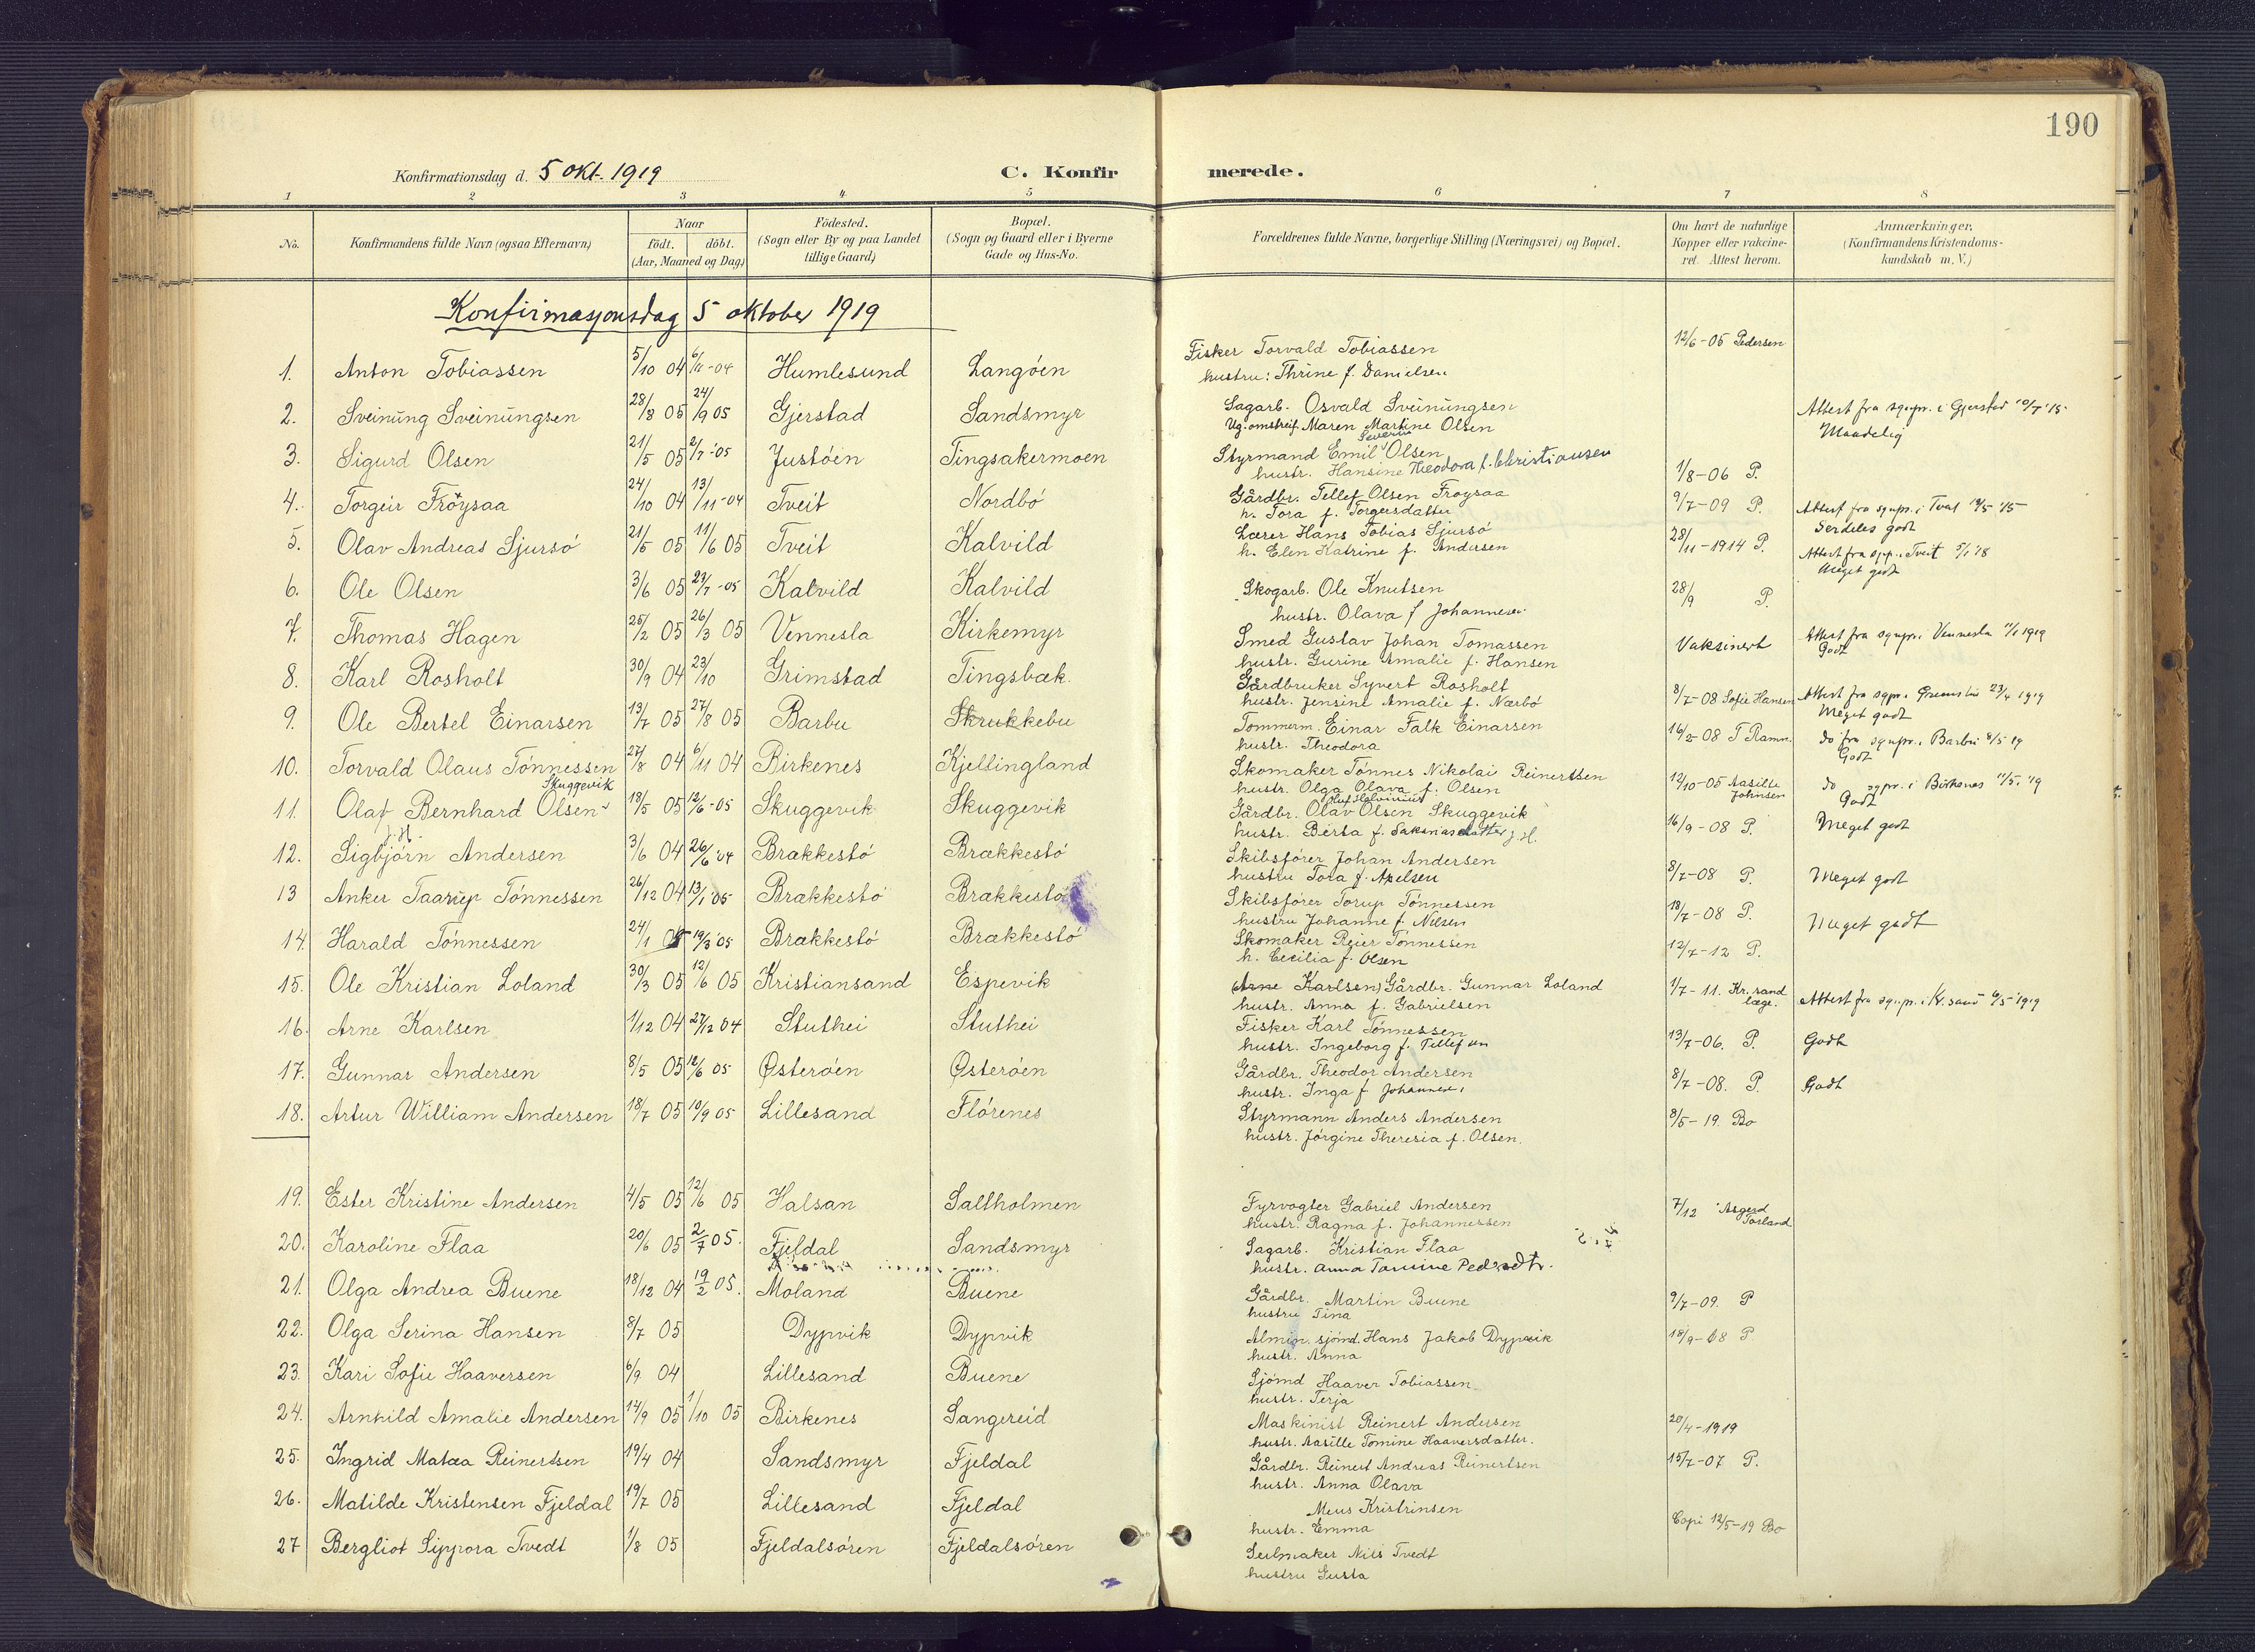 190
Konfirmationsdag d. 5 okt. 1919
C. Konfirmerede.
1 2 3 4 5 6 7 8
No.
Konfirmandens fulde Navn (ogsaa Efternavn)
Naar
födt. döbt.
(Aar, Maaned og Dag)
Födested.
(Sogn eller By og paa Landet
tillige Gaard)
Bopæl.
(Sogn og Gaard eller i Byerne
Gade og Hus-No.
Forældrenes fulde Navne, borgerlige Stilling (Næringsvei) og Bopæl.
Om havt de naturlige
Kopper eller vakcine-
ret. Attest herom.
Anmærkninger.
(Konfirmandens Kristendoms-
kundskab m. V.)
Konfirmasjonsdag 5 oktober 1919
1. Anton Tobiassen 5/10 04 6/11-04 Humlesund Langöen
Fisker Torvald Tobiassen 12/6-05 Pedersen
hustru: Thrine f. Danielsen
2. Sveinung Sveinungsen 28/8 05 24/9 05 Gjerstad Sandsmyr
Sagarb. Osvald Sveinungsen Attest fra sognpr. i Gjerstad 10/7 '15
Ug. omstreif. Maren Martine Olsen Maadelig
3. Sigurd Olsen 21/5 05 2/7-05 Justöen Tingsakermoen
Styrmand Emil Severin Olsen
hustr. Hansine Theodora f. Christiansen 1/8-06 P.
4. Torgeir Fröysaa 24/10 04 13/11-04 Tveit Nordbö
Gårdbr. Tellef Olsen Froysaa 9/7-09 P.
h. Tora f. Torgersdatter Særdeles godt
5. Olav Andreas Sjursö 21/5 05 11/6 05 Tveit Kalvild
Lærer Hans Tobias Sjursö 28/11-1914 P.
h. Elen Katrine f. Andersen Meget godt
6. Ole Olsen 3/6 05 23/7-05 Kalvild Kalvild
Skogarb. Ole Knutsen 28/9 P.
hustr. Olava f Johannesen
7. Thomas Hagen 25/2 05 26/3 05 Vennesla Kirkemyr
Smed Gustav Johan Tomassen Vaksinert Attest fra sognpr. i Vennesla 11/1 1919
hustr. Gurine Amalie f. Hansen Godt
8. Karl Rosholt 30/9 04 23/10 Grimstad Tingsbæk.
Gårdbruker Syvert Rosholt 8/7-08 Sofie Hansen
hustr. Jensine Amalie f. Nærbö Meget godt
9. Ole Bertel Einarsen 13/7 05 27/8 05 Barbu Skrukkebu
Tommerm. Einar Falk Einarsen 16/2-08 T Ramn.
hustr. Theodora do fra sognpr. i Barbu 8/5 19 Godt
10. Torvald Olaus Tönnessen 27/8 04 6/11 04 Birkenes Kjellingland
Skomaker Tönnes Nikolai Reinertsen 12/10-05 Aasille Johnsen
hustr. Olga Olava f. Olsen do sgpr. i Birkenes 11/5 '19 Godt
11. Olaf Bernhard Olsen Skuggevik 13/5 05 12/6-05 Skuggevik Skuggevik
Gårdbr. Olav Olsen Skuggevik 16/9-08 P. Meget godt
hustr. Berta f. Saksnasdatter J. H.
12. J. H. Sigbjörn Andersen 3/6 04 26/6 '04 Brækkestö Brækkestö
Skibsförer Johan Andersen 8/7-08 P. Meget godt
hustru Tora f. Axelsen
13 Anker Taarup Tönnessen 26/12 04 13/1 '05 Brækkestö Brækkestö
Skibsförer Torup Tönnessen 18/7-08 P. Meget godt
hustru Johanne f. Nilsen
14. Harald Tönnessen 24/1 05 19/3 '05 Brækkestö Brækkestö
Skomaker Reier Tönnessen 12/7-12 P.
h. Cecilia f. Olsen
15. Ole Kristian Loland 30/3 05 12/6 05 Kristiansand Espevik
(Arne Karlsen) Gårdbr. Gunnar Loland 1/7-11. Kr.sand læge.
hustr. Anna f. Gabrielsen Attest fra sgn.pr. i Kr.sand 6/5 1919
16. Arne Karlsen 1/12 04 27/12 04 Stuthei Stuthei
Fisker Karl Tönnessen 13/7-06. P. Godt
hustr. Ingeborg f. Tellefsen
17. Gunnar Andersen 8/5 05 12/6 05 Østeröen Østeröen
Gårdbr. Theodor Andersen 8/7-08. P. Godt
hustr. Inga f Johannesen
18. Artur William Andersen 18/7 05 10/9 05 Lillesand Flörenes
Styrmann Anders Andersen 8/5-19. Bo
hustr. Jörgine Theresia f. Olsen.
19. Ester Kristine Andersen 4/5 05 12/6 05 Halsan Saltholmen
Fyrvogter Gabriel Andersen 7/12 Asgerd Torland
hustr. Ragna f. Johannessen
20. Karoline Flaa 20/6 05 2/7 05. Fjeldal Sandsmyr
Sagarb. Kristian Flaa
hustr. Anna Tomine Pedersdtr.
21. Olga Andrea Buene 18/12 04 19/2 05. Moland Buene
Gårdbr. Martin Buene 9/7-09. P
hustru Tina
22. Olga Serina Hansen 8/7 05 Dypvik Dypvik
Almin. sjömd. Hans Jakob Dypvik 18/9-08 P
hustr. Anna
23. Kari Sofie Haaversen 6/9 04 Lillesand Buene
Sjömd Haaver Tobiassen
hustr. Terja
24. Arnhild Amalie Andersen 14/9 05 1/10 05 Birkenes Sangereid
Maskinist Reinert Andersen 20/4-1919
hustr. Aasille Tomine Haaversdatter.
25. Ingrid Matæa Reinertsen 19/4 04 Sandsmyr Fjeldal
Gårdbr. Reinert Andreas Reinertsen 15/7-07 P.
hustr. Anna Olava
26. Matilde Kristensen Fjeldal 19/7 05 Lillesand Fjeldal
Meus Kristinsen
hustr. Emma Copi 12/5-19 Bo
27 Bergliot Sippora Tvedt 1/8 05 Fjeldalsören Fjeldalsören
Seilmaker Nils Tvedt
hustru Gusta